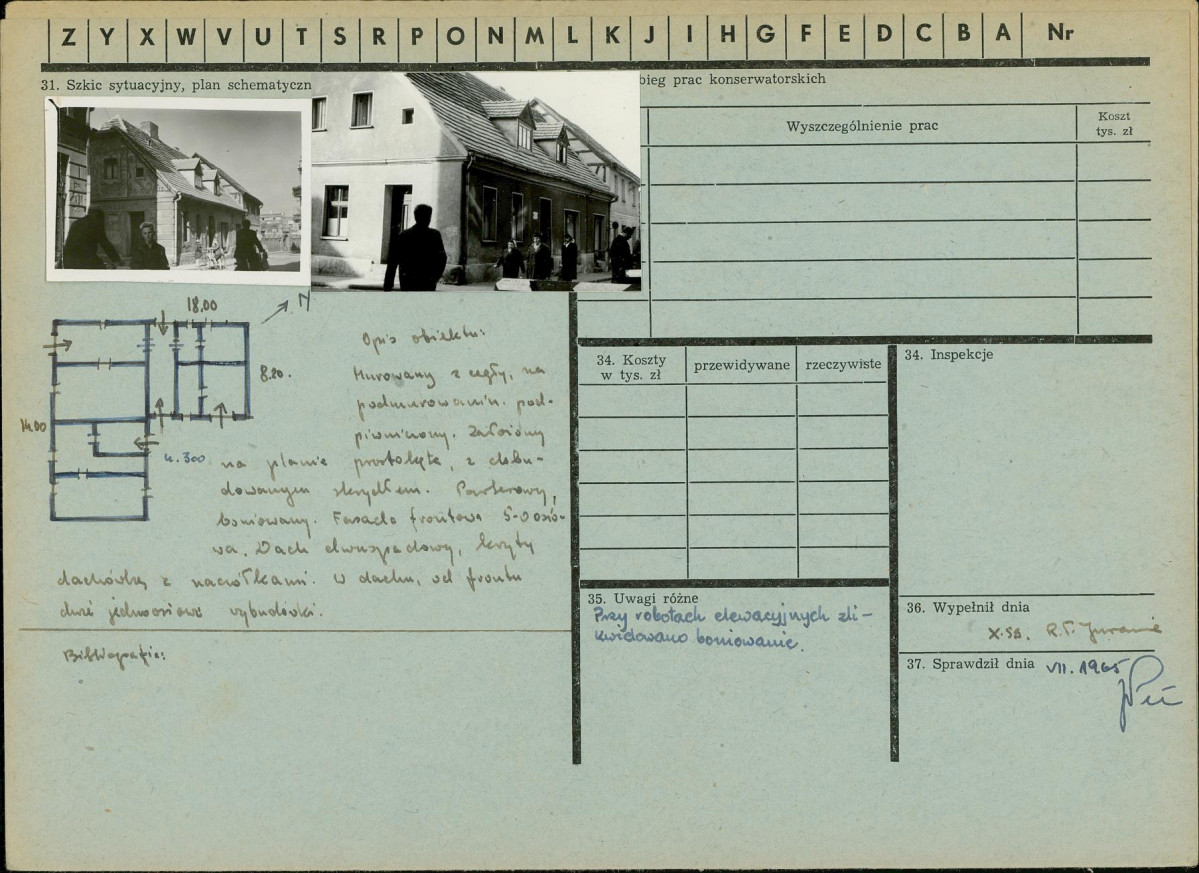 Z Y X W V U T S R P O N M L K J I H G F E D C B A Nr
31. Szkic sytuacyjny, plan schematyczn
bieg prac konserwatorskich
Wyszczególnienie prac
Koszt
tys. zł
18.00
N
8.20.
14.00
k. 300
Opis obiektu:
Murowany z cegły, na
podmurowaniu. pod-
piwniczony. Założony
na planie prostokąta, z dobu-
dowanym skrzydłem. Parterowy,
boniowany. Fasada frontowa 5-0 osio-
wa. Dach dwuspadowy, kryty
dachówką z naczółkami. W dachu, od frontu
dwie jednoosiowe wybudówki.
Bibliografia:
34. Koszty
w tys. zł
przewidywane
rzeczywiste
34. Inspekcje
35. Uwagi różne
Przy robotach elewacyjnych zli-
kwidowano boniowanie.
36. Wypełnił dnia
X.58. R.T.
37. Sprawdził dnia VII.1965